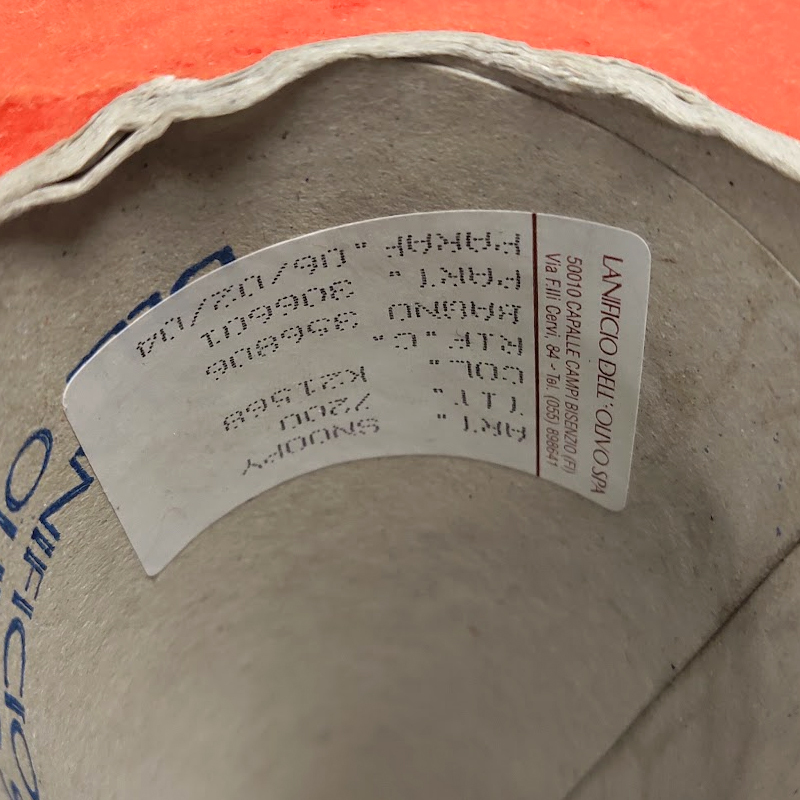 LANIFICIO DELL'OLIVO SPA
50010 CAPALLE CAMPI BISENZIO (FI)
Via F.lli Cervi, 84 - Tel. (055) 898641
ART. SNOOPY
TIT. 7200
COL. K21568
RIF.C.
BAGNO 356806
PART. 306601
PARAF. 06/02/04
NIFICIO